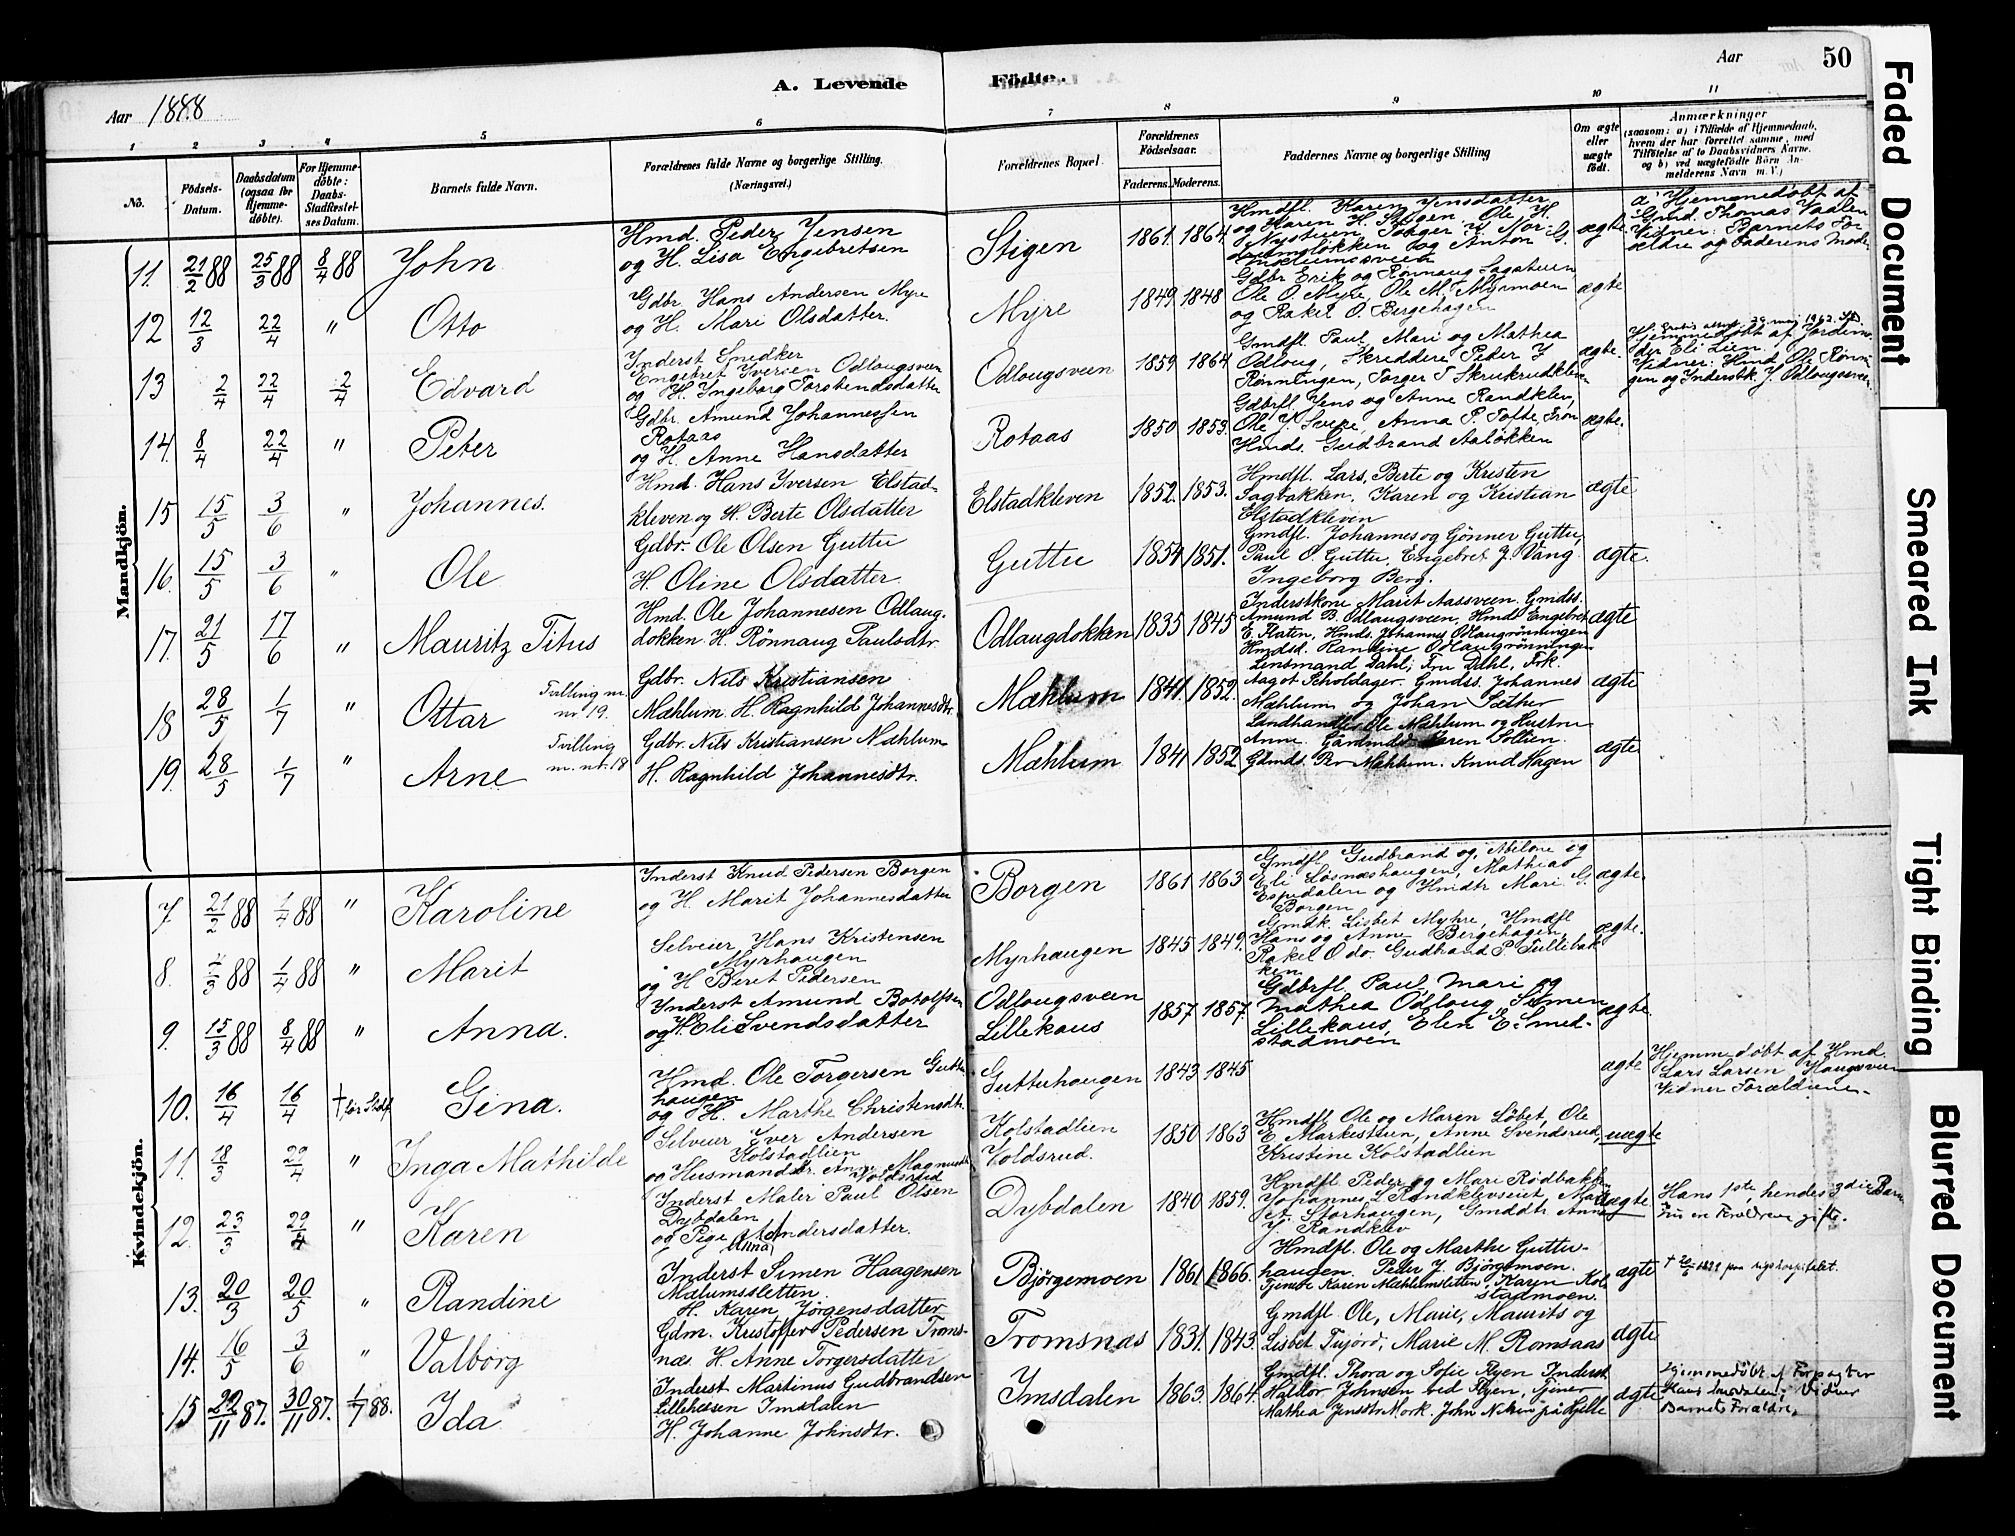 Aar 1888
A. Levende Födte.
Aar 50
1 2 3 4 5 6 7 8 9 10 11
No.
Födsels-Datum.
Daabsdatum (ogsaa for Hjemme-døbte).
For Hjemme-døbte: Daabs-Stadfæstel-ses Datum.
Barnets fulde Navn.
Forældrenes fulde Navne og borgerlige Stilling. (Næringsvei.)
Forældrenes Bopæl.
Forældrenes Födselsaar.
Faderens. Moderens.
Faddernes Navne og borgerlige Stilling
Om ægte eller uægte født.
Anmærkninger
(saasom: a) i Tilfælde af Hjemmedaab, hvem der har forrettet samme, med Tilföielse af to Daabsvidners Navne. og b) ved uægtefödte Börn An-melderens Navn m. V.)
Mandkjön.
11. 21/2 88 25/3 88 8/4 88 John
Hmd. Peder Jensen
og H. Lisa Engebretsen
Stigen 1861. 1864.
Hmdfl. Karen Jensdatter
og Karen H. Stigen. Ole H.
Nysteien
ægte
a) Hjemmedøbt af
Gmd. Thomas Vaalen
Vidner: Barnets For-
ældre og Faderens Moder
12 12/3 22/4 " Otto
Gdbr. Hans Andersen Myre
og H. Mari Olsdatter.
Myre 1849. 1848
Gdbr Erik og Rønnaug
Ole O. Myre, Ole M. Myrmoen
og Rakel O. Bergehagen
ægte
13 2/4 22/4 2/4 Edvard
Inderst Snedker
Engebret Iversen Odlougsveen
og H. Ingeborg Torstendsdatter
Odlougsveen 1859. 1864
Gmdfl. Paul, Mari og Mathea
Odloug, Skreddere Peder J
Rønningen, Torger T Skrukrudkleven
ægte.
Hjemmedøbt af Jordem-
der Eli Lien,
Vidner: Hmd. Ole Rønnin-
gen og Inderstk. J. Odlougsveen
14. 8/4 22/4 " Peter
Gdbr. Amund Johannessen
Rotaas
og H. Anne Hansdatter
Rotaas 1850 1853.
Gdbrfl. Jens og Anne Randklev,
Ole J. Sveje, Anna P. Tofte, Tron
Hmds. Gudbrand Aaløkken
ægte.
15 15/5 3/6 " Johannes.
Hmd. Hans Iversen Elstad-
kleven og H. Berte Olsdatter
Elstadkleven 1852. 1853.
Hmdfl. Lars, Berte og Kristen
Sagbakken, Karen og Kristian
Elstadkleven
ægte
16. 15/5 3/6 " Ole
Gdbr. Ole Olsen Guttu
H. Oline Olsdatter.
Guttu 1854 1851.
Gmdfl. Johannes og Gønner Guttu,
Paul O. Guttu, Engebret J. Vang
Ingeborg Berg.
ægte.
17. 21/5 17/6 " Mauritz Titus
Hmd. Ole Johannesen Odlaug-
dokken. H. Rönnaug Paulsdtr.
Odlaugdokken 1835 1845
Inderstkone Marit Aassveen. Gmdss.
Amund B. Odlaugsveen, Hmds Engebret
E. Flaten, Hmds. Johannes Odlaugrönningen
Hmdsd. Randine Odlaugrönningen
ægte
18 28/5 1/7 " Ottar
Tvilling m.
nr. 19.
Gdbr. Nils Kristiansen
Mæhlum. H. Ragnhild Johannesdtr.
Mæhlum 1841. 1852.
Lensmand Dahl, Fru Dahl, Frk.
Aagot Scholdager. Gmdss. Johannes
Mæhlum og Johan Sæther
ægte
19. 28/5 1/7 " Arne
Tvilling
m. nr. 18
Gdbr. Nils Kristiansen Mæhlum
H. Ragnhild Johannesdtr.
Mæhlum 1841 1852
Landhandler Ole Mæhlum og Hustru
Anne. Karen Sollien.
Gdmds. Per Mæhlum. Knud Hagen
ægte
Kvindekjön.
7. 21/2 88 1/4 88 " Karoline
Inderst Knud Pedersen Borgen
og H. Marit Johannesdatter
Borgen 1861 1863
Gmdfl Gudbrand og Abilone og
Eli Løsnæshaugen, Mathias
Espedalen og Hmdtr Mari G.
Borgen
ægte.
8. 4/3 88 1/4 88 " Marit
Selveier Hans Kristensen
Myrhaugen
og H Beret Pedersen
Myrhaugen 1845 1849.
Gmdk. Lisbet Myhre, Hmdfl
Hans og Anne Bergehagen,
Rakel O do. Gudbrand P. Tullebak-
ken
ægte.
9. 15/3 88 8/4 88 " Anna.
Inderst Amund Botolfsen
og H. Eli Svendsdatter
Odlougsveen
Lillekaus 1857 1857.
Gdbrfl. Paul, Mari og
Mathea Odloug, Simen
Lillekaus, Elen E. Smed-
stadmoen
ægte.
10. 16/4 16/4 † før Stdf Gina.
Hmd. Ole Torgersen Guttu-
haugen
og H. Marthe Christensdtr.
Guttuhaugen 1843 1845
ægte
Hjemmedøbt af Hmd.
Lars Larsen Haugsveen
Vidner Forældrene.
11. 18/3 29/4 " Inga Mathilde
Selveier Iver Andersen
Kolstadlien
og Husmandsdtr. Anne Magnusdtr
Voldsrud
Kolstadlien
Voldsrud. 1850 1863
Hmdfl Ole og Maren Löbet, Ole
E. Markestuen, Anne Svendsrud,
Kristine Kolstadlien
uægte
12. 23/3 29/4 " Karen
Inderst Maler Paul Olsen
Dybdalen
og Pige Anna Andersdatter.
Dybdalen 1840 1859.
Hmdfl Peder og Mari Rødbakken
Johannes L Randklevseiet, Mari
A. Storhaugen, Gmddtr Anne
J. Randklev
uægte
Hans 1ste hendes 3die Barn
Forældrene gifte.
13. 20/3 20/5 " Randine
Inderst Simen Haagensen
Mælumssletten.
H. Karen Jørgensdatter
Bjørgemoen 1861 1866.
Hmdfl. Ole og Marthe Guttu-
haugen. Peder J. Bjørgemoen.
Tjenere Karen Mæhlumsletten, Karen Kol-
stadmoen.
ægte
14. 16/5 3/6 " Valborg
Gdm. Kristoffer Pedersen Troms-
næs. H. Anne Torgersdatter
Tromsnæs 1831. 1843.
Gmdfl. Ole, Marie, Maurits og
Lisbet Fujord, Marie M. Romsaas
ægte
15 22/11 87. 30/11 87. 1/7 88. Ida
Inderst Martinus Gudbrandsen
Lillehesen Imsdalen
H. Johanne Johnsdtr.
Imsdalen 1863. 1864.
Gmdfl. Thora og Sofie Flyen Inderst
Haldor Johnsen ved Flyen, tjener
Mathea Jensdtr Mork. John Nilsen på Hjelle
ægte
Hjemmedöbt af Forpagter
Hans Imsdalen; Vidner
Barnets Forældre.
Faded Document
Smeared Ink
Tight Binding
Blurred Document